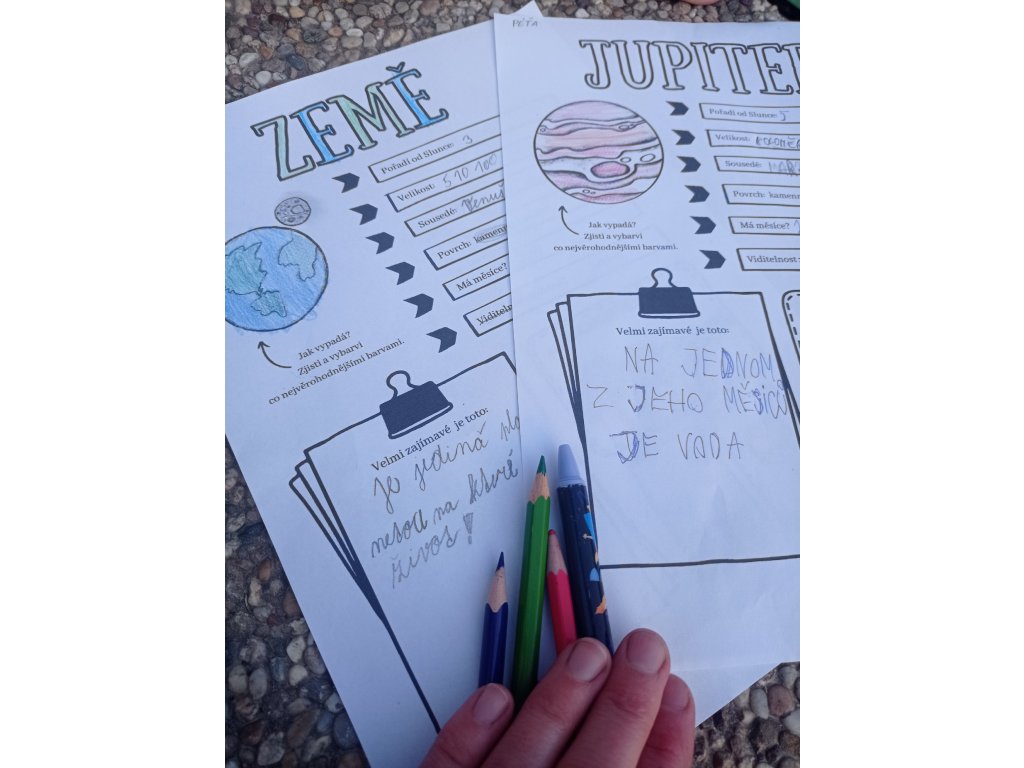 PÉŤA
ZEMĚ
Pořadí od Slunce: 3
Velikost: 510 100
Sousedé: Venuš
Povrch:
Má měsíce?
Jak vypadá?
Zjisti a vybarvi
co nejvěrohodnějšími barvami.
Velmi zajímavé je toto:
je jediná
na které
život!
JUPITER
Pořadí od Slunce:
Velikost:
Sousedé:
Povrch:
Má měsíce?
Viditelnost:
Jak vypadá?
Zjisti a vybarvi
co nejvěrohodnějšími barvami.
Velmi zajímavé je toto:
NA JEDNOM
Z JEHO MĚSÍCŮ
JE VODA